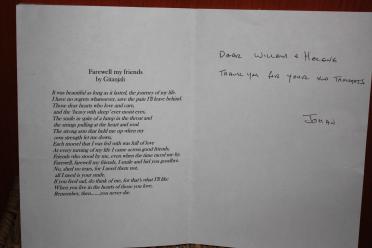 Farewell my friends
by Gitanjali
It was beautiful as long as it lasted, the journey of my life.
I have no regrets whatsoever, save the pain I'll leave behind.
Those dear hearts who love and care,
and the heavy with sleep ever moist eyes,
The smile in spite of a lump in the throat and
the strings pulling at the heart and soul
The strong arms that held me up when my
own strength let me down,
Each morsel that I was fed with was full of love
At every turning of my life I came across good friends,
Friends who stood by me, even when the time raced me by.
Farewell, farewell my friends, I smile and bid you goodbye.
No, shed no tears, for I need them not,
all I need is your smile.
If you feel sad, do think of me, for that's what I'll like.
When you live in the hearts of those you love,
Remember, then......you never die.
DEAR WILLEM & HELENE
THANK YOU FOR YOUR KIND THOUGHTS
JOHAN